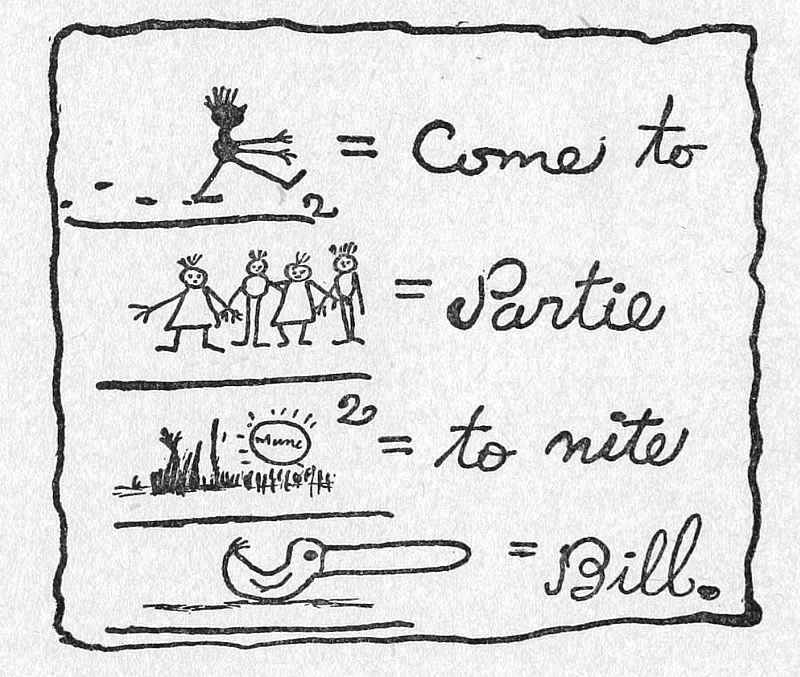 2 = Come to
= Partie
Mune 2 = to nite
= Bill.